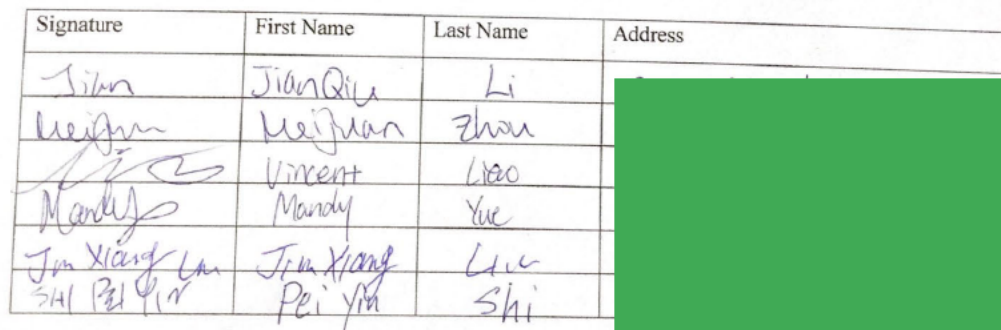 Signature First Name Last Name Address
Jian JianQiu Li
Meijuan Meijuan Zhou
Vincent Liao
Mandy Mandy Yue
Jin Xiang Jin Xiang
SHI PEI YIN Pei Yin Shi